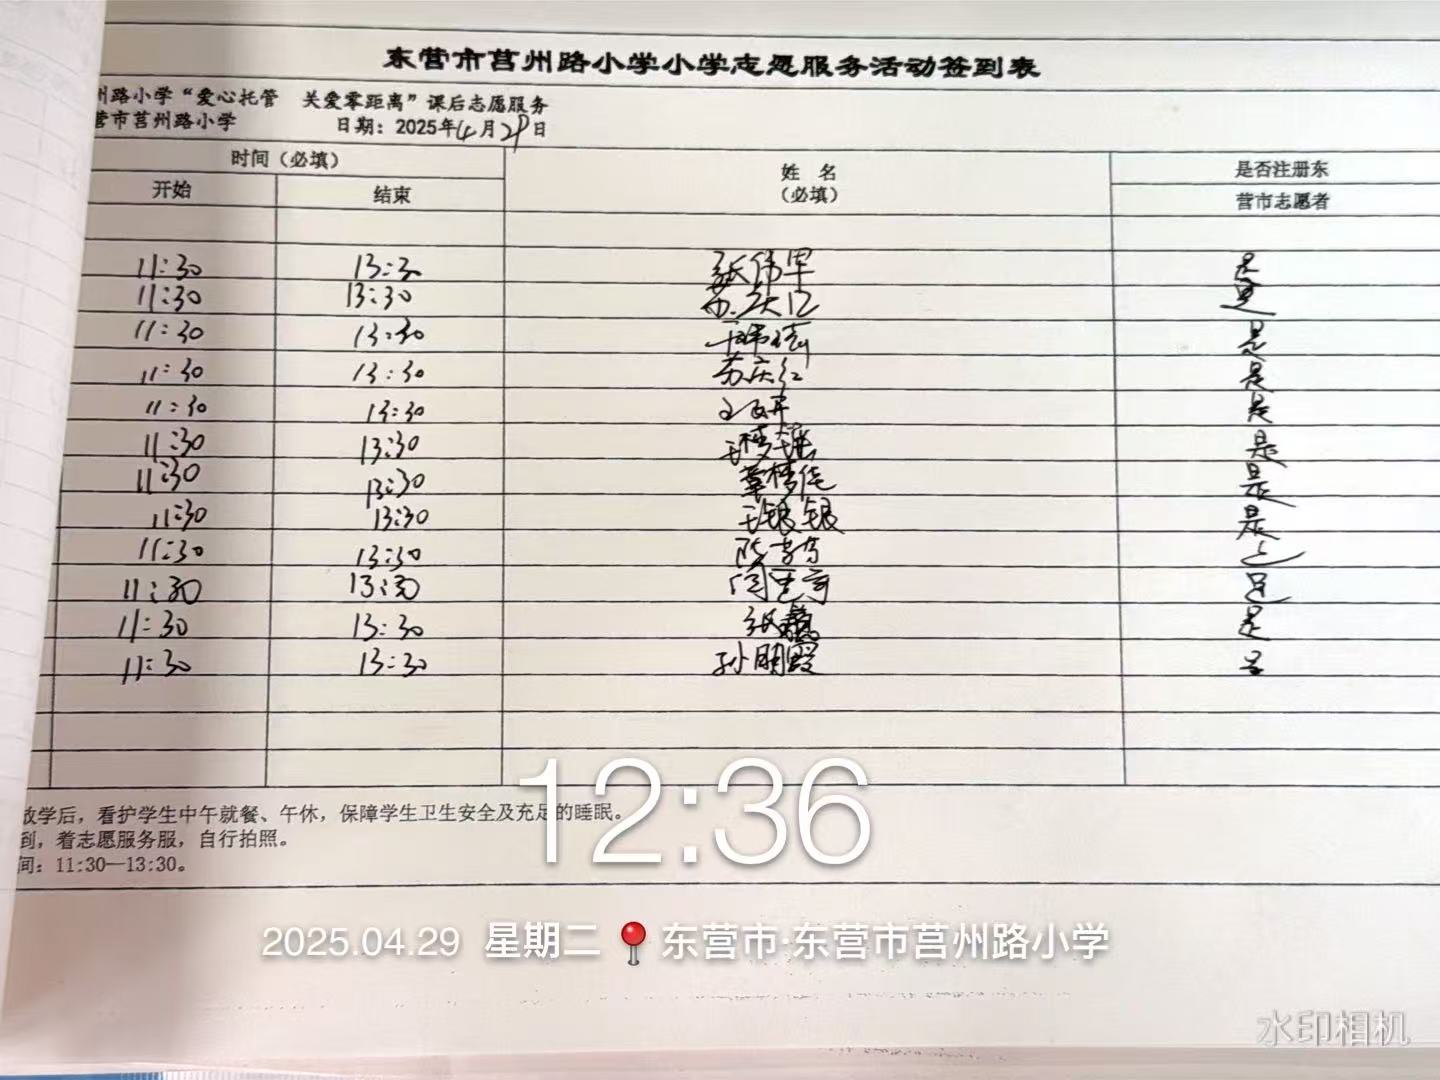 东营市莒州路小学小学志愿服务活动签到表
州路小学“爱心托管 关爱零距离”课后志愿服务
营市莒州路小学 日期：2025年4月29日
时间（必填） 姓 名 （必填） 是否注册东营市志愿者
开始 结束
11:30 13:30 张伟军 是
11:30 13:30 是
11:30 13:30 是
11:30 13:30 苏庆红 是
11:30 13:30 是
11:30 13:30 是
11:30 13:30 是
11:30 13:30 王银银 是
11:30 13:30
11:30 13:30 是
11:30 13:30 是
11:30 13:30 孙明霞
放学后，看护学生中午就餐、午休，保障学生卫生安全及充足的睡眠。
到，着志愿服务服，自行拍照。
间：11:30—13:30。
12:36
2025.04.29 星期二 东营市·东营市莒州路小学
水印相机